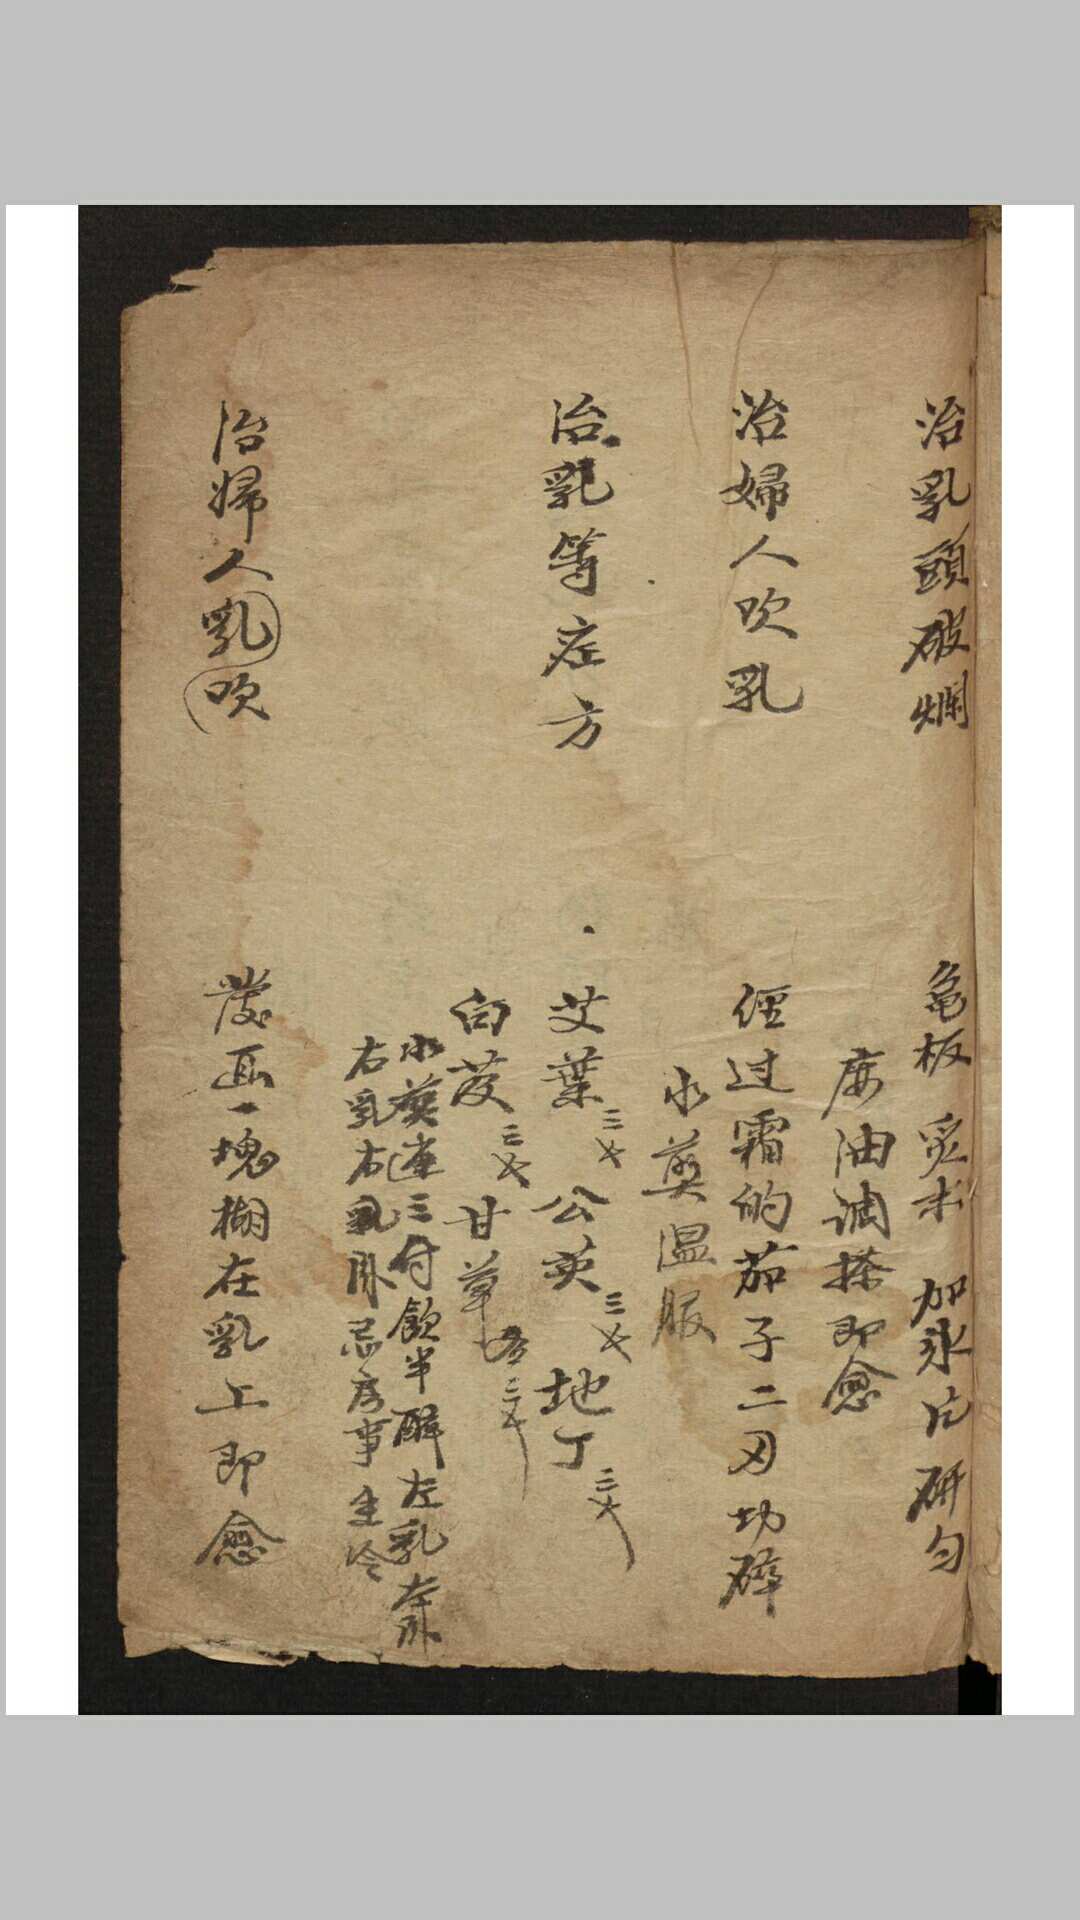 治乳頭破爛
龟板 炙末 加氷片研匀
油调搽即愈
治婦人吹乳
經过霜的茄子二刃切碎
水煎温服
治乳等症方
艾葉三 公英三 地丁三
甘草
水煎連三付飲半醉左乳左卧
右乳右卧忌房事生冷
治婦人乳吹
一塊糊在乳上即愈